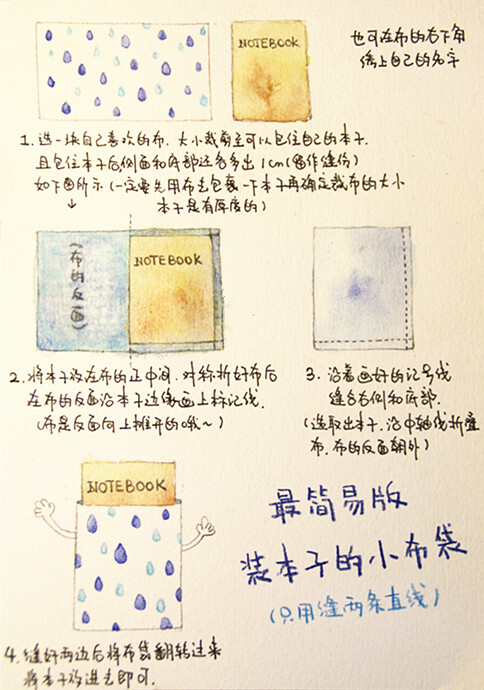 NOTEBOOK
也可在布的右下角
绣上自己的名字
1. 选一块自己喜欢的布. 大小裁剪至可以包住自己的本子.
且包住本子后侧面和底部还各多出1cm(留作缝份)
如下图所示 (一定要先用布去包裹一下本子再确定裁布的大小
↓ 本子是有厚度的)
(布的反面)
NOTEBOOK
2. 将本子放在布的正中间. 对称折好布后
在布的反面沿本子边缘画上标记线.
(布是反面向上摊开的哦~)
3. 沿着画好的记号线
缝合右侧和底部.
(选取出本子. 沿中轴线折叠
布. 布的反面朝外)
NOTEBOOK
最简易版
装本子的小布袋
(只用缝两条直线)
4. 缝好两边后将布袋翻转过来
将本子放进去即可.